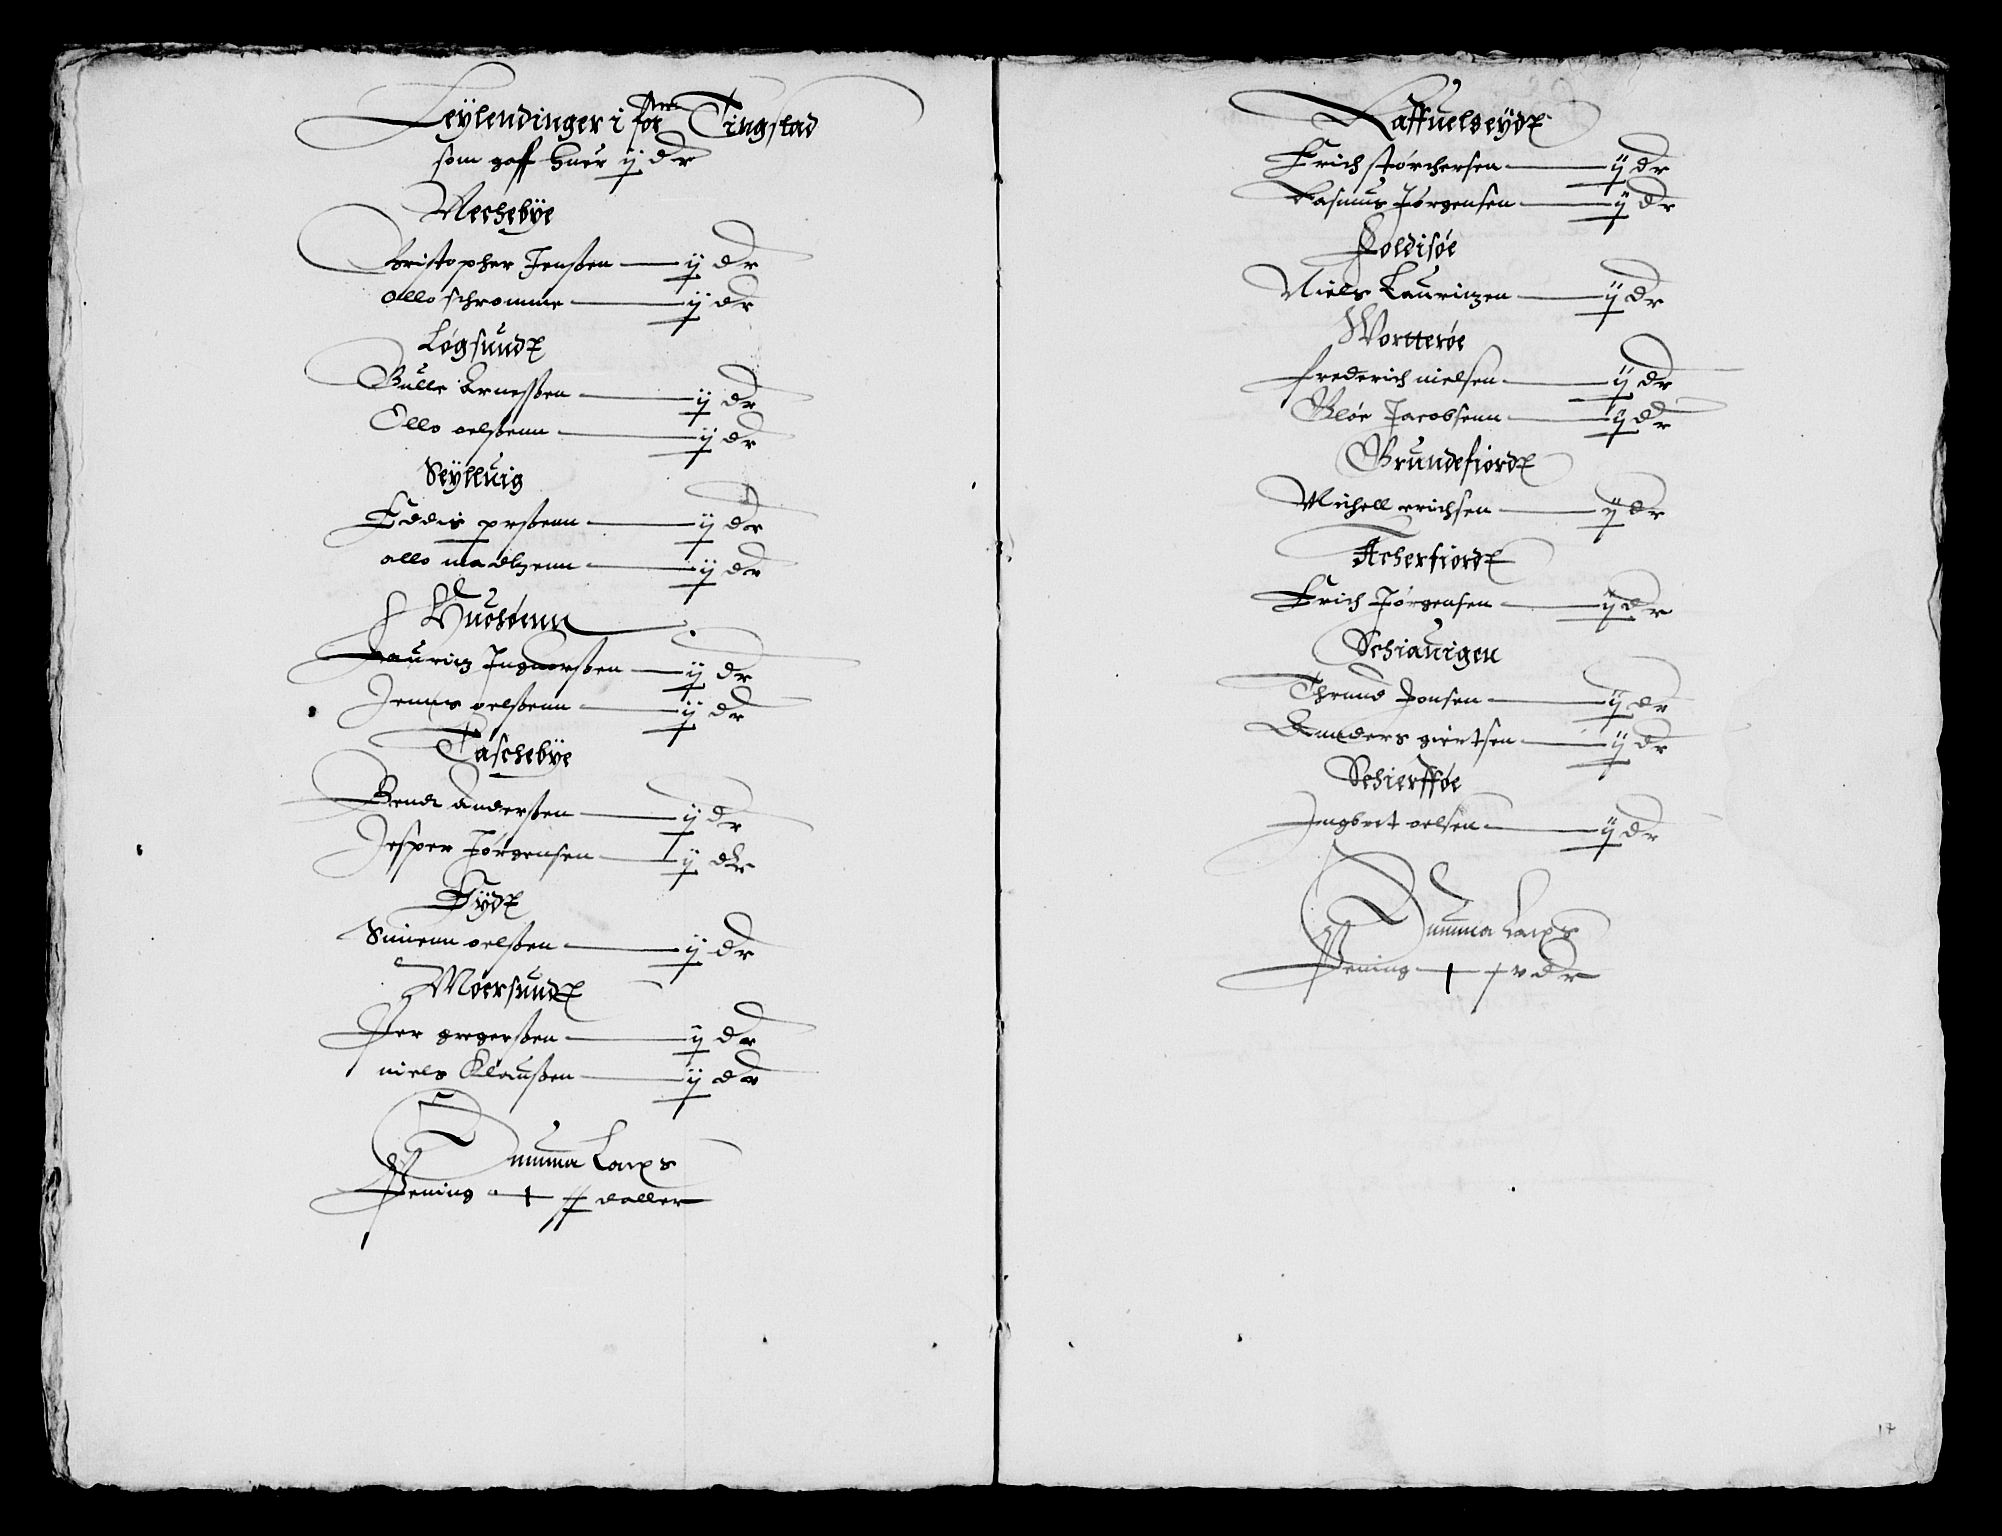 Leylendinger i for^ne Tingstad
som gaff huer ij dr
Mechebye
Christopher Jenßen — ij dr
Ollo schromme — ij dr
Løgsundt
Gulle Arneßen — ij dr
Ello oelßenn — ij dr
Seylluig
Eddis prßenn — ij dr
Ollo madtzenn — ij dr
Huosøenn
Lauritz Inguorßen — ij dr
Jenns oelßenn — ij dr
Taschebye
Bendt Anderßen — ij dr
Jesper Jørgensen — ij dr
Eydt
Simenn oelßen — ij dr
Moersundt
Per gregerßen — ij dr
niels Klaußen — ij dr
Summa Laups
Pening — daller
Raffuelseydt
Erich størchersen — ij dr
Rasmus Jørgensen — ij dr
Foldisøe
Niels Lauritzen — ij dr
Wortterøe
frederich nielsen — ij dr
Oløe Jacobsenn — ij dr
Grundefiordt
Michell erichsen — ij dr
Acherfiordt
Erich Jørgensen — ij dr
Schiauigen
Thrund Jonsen — ij dr
Annders giertsen — ij dr
Schierfføe
Ingbret oelsen — ij dr
Summa Laups
Pening — xv dr
17